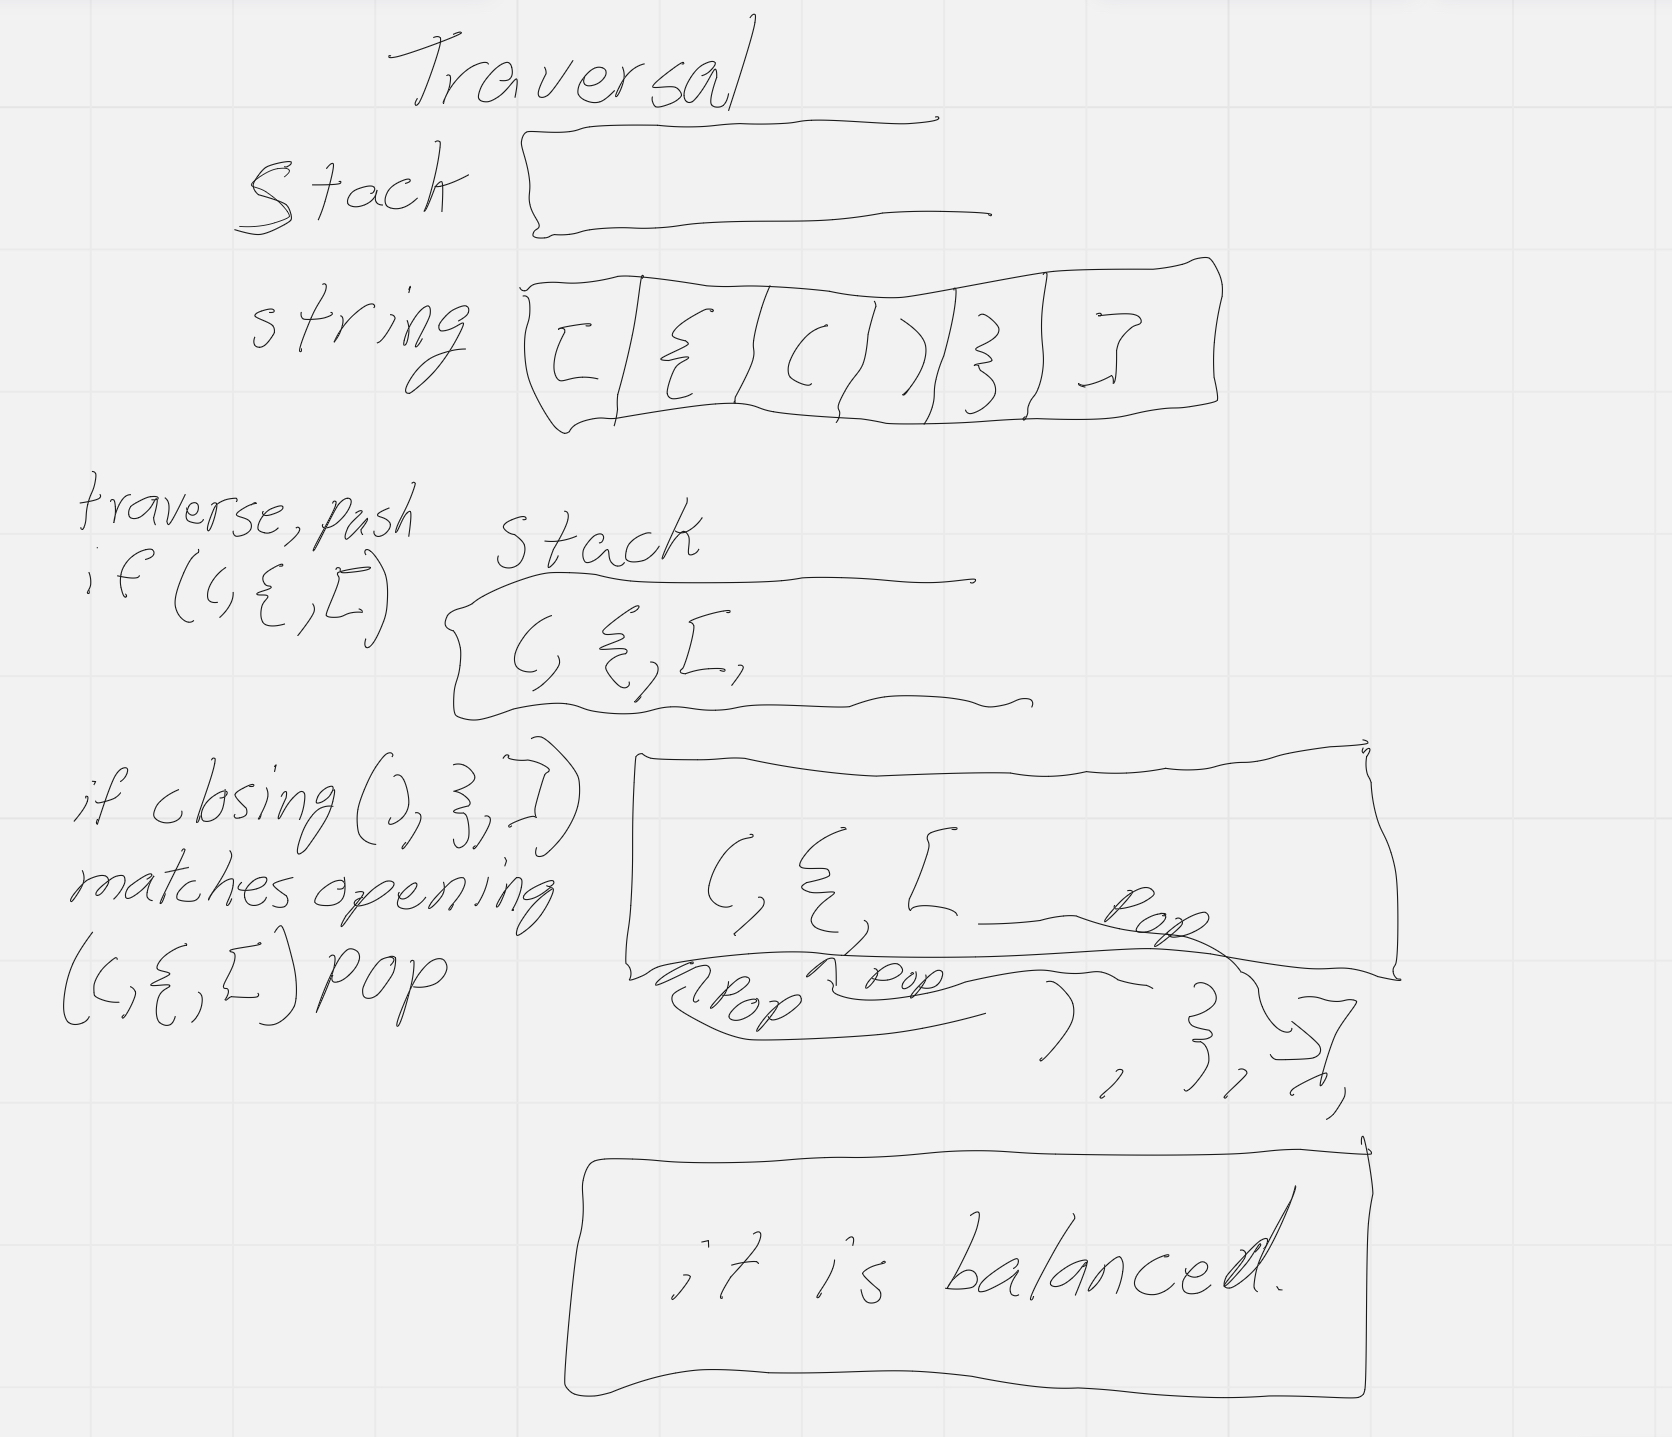 Traversal
Stack
string [ { ( ) } ]
traverse, push
if ((, {, [)
stack
(, {, [,
if closing (), }, ])
matches opening
((, {, [) pop
(, {, [
pop
pop pop
), }, ],
it is balanced.